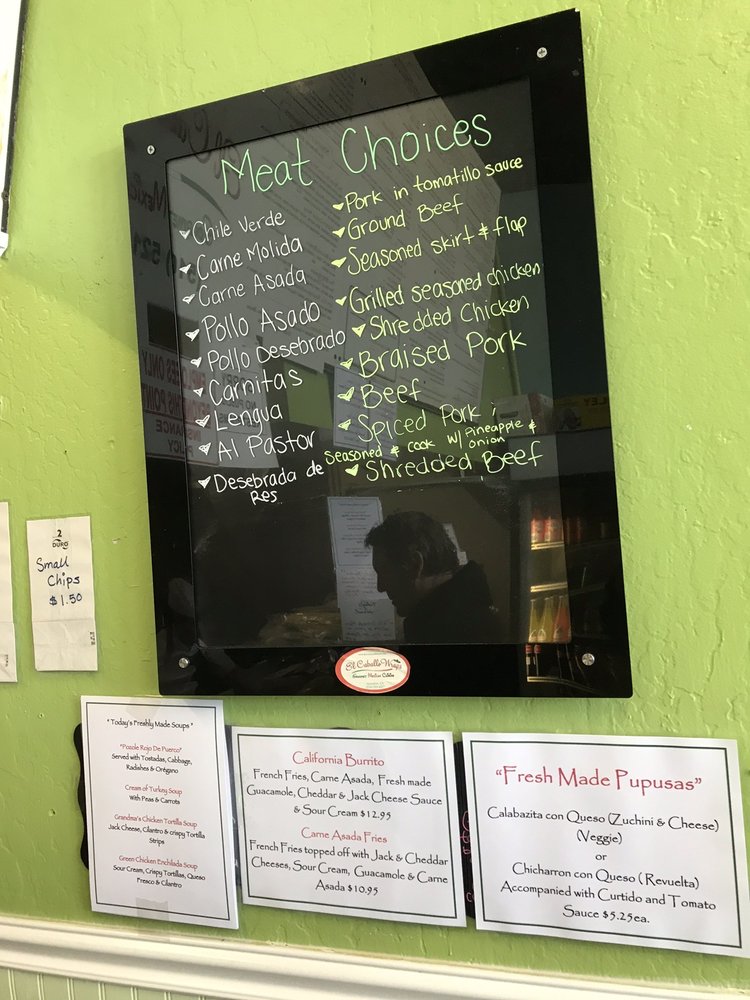 Meat Choices
Chile Verde
Carne Molida
Carne Asada
Pollo Asado
Pollo Desebrado
Carnitas
Lengua
Al Pastor
Desebrada de
Res
Pork in tomatillo sauce
Ground Beef
Seasoned skirt & flap
Grilled seasoned chicken
Shredded Chicken
Braised Pork
Beef
Spiced Pork ;
Seasoned & cook w/ Pineapple &
onion
Shredded Beef
2
DURO
Small
Chips
$1.50
El Caballo Wraps
"Today's Freshly Made Soups"
"Pozole Rojo De Puerco"
Served with Tostadas, Cabbage,
Radishes & Orégano
Cream of Turkey Soup
With Peas & Carrots
Grandma's Chicken Tortilla Soup
Jack Cheese, Cilantro & crispy Tortilla
Strips
Green Chicken Enchilada Soup
Sour Cream, Crispy Tortillas, Queso
Fresco & Cilantro
California Burrito
French Fries, Carne Asada, Fresh made
Guacamole, Cheddar & Jack Cheese Sauce
& Sour Cream $12.95
Carne Asada Fries
French Fries topped off with Jack & Cheddar
Cheeses, Sour Cream, Guacamole & Carne
Asada $10.95
"Fresh Made Pupusas"
Calabazita con Queso (Zuchini & Cheese)
(Veggie)
or
Chicharron con Queso (Revuelta)
Accompanied with Curtido and Tomato
Sauce $5.25ea.